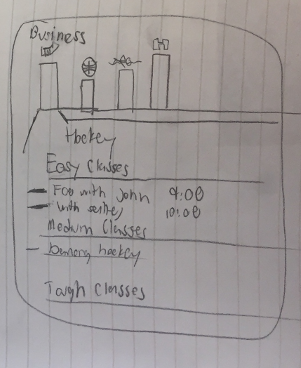 Business
Hockey
Easy Classes
Foo with John 9:00
with 10:00
Medium Classes
hockey
Tough Classes